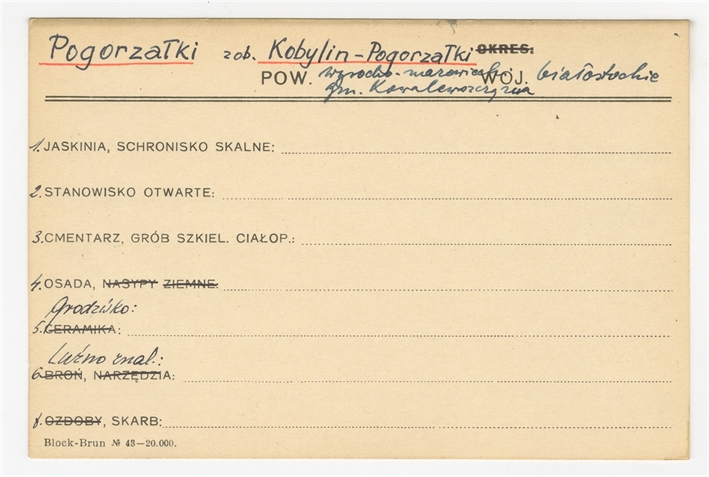 Pogorzałki zob. Kobylin-Pogorzałki OKRES:
POW. wysocko-mazowieck WOJ. białostockie
gm. Kowalewszczyzna
1. JASKINIA, SCHRONISKO SKALNE:
2. STANOWISKO OTWARTE:
3. CMENTARZ, GRÓB SZKIEL. CIAŁOP.:
4. OSADA, NASYPY ZIEMNE.
Grodzisko:
5. CERAMIKA:
Luźno znal.:
6. BROŃ, NARZĘDZIA:
7. OZDOBY, SKARB:
Block-Brun № 43—20.000.